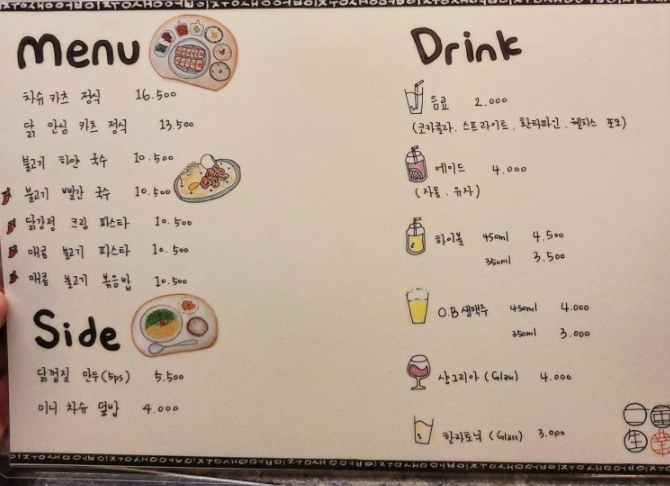 Menu
차슈 카츠 정식 16.500
닭 안심 카츠 정식 13.500
불고기 하얀 국수 10.500
불고기 빨간 국수 10.500
닭강정 크림 파스타 10.500
매콤 불고기 파스타 10.500
매콤 불고기 볶음밥 10.500
Side
닭껍질 만두(5ps) 5.500
미니 차슈 덮밥 4.000
Drink
음료 2.000
(코카콜라. 스프라이트. 환타파인. 웰치스 포도)
에이드 4.000
(자몽. 유자)
하이볼 450ml 4.500
350ml 3.500
O.B생맥주 450ml 4.000
350ml 3.000
샹그리아 (Glass) 4.000
한라토닉 (Glass) 3.000